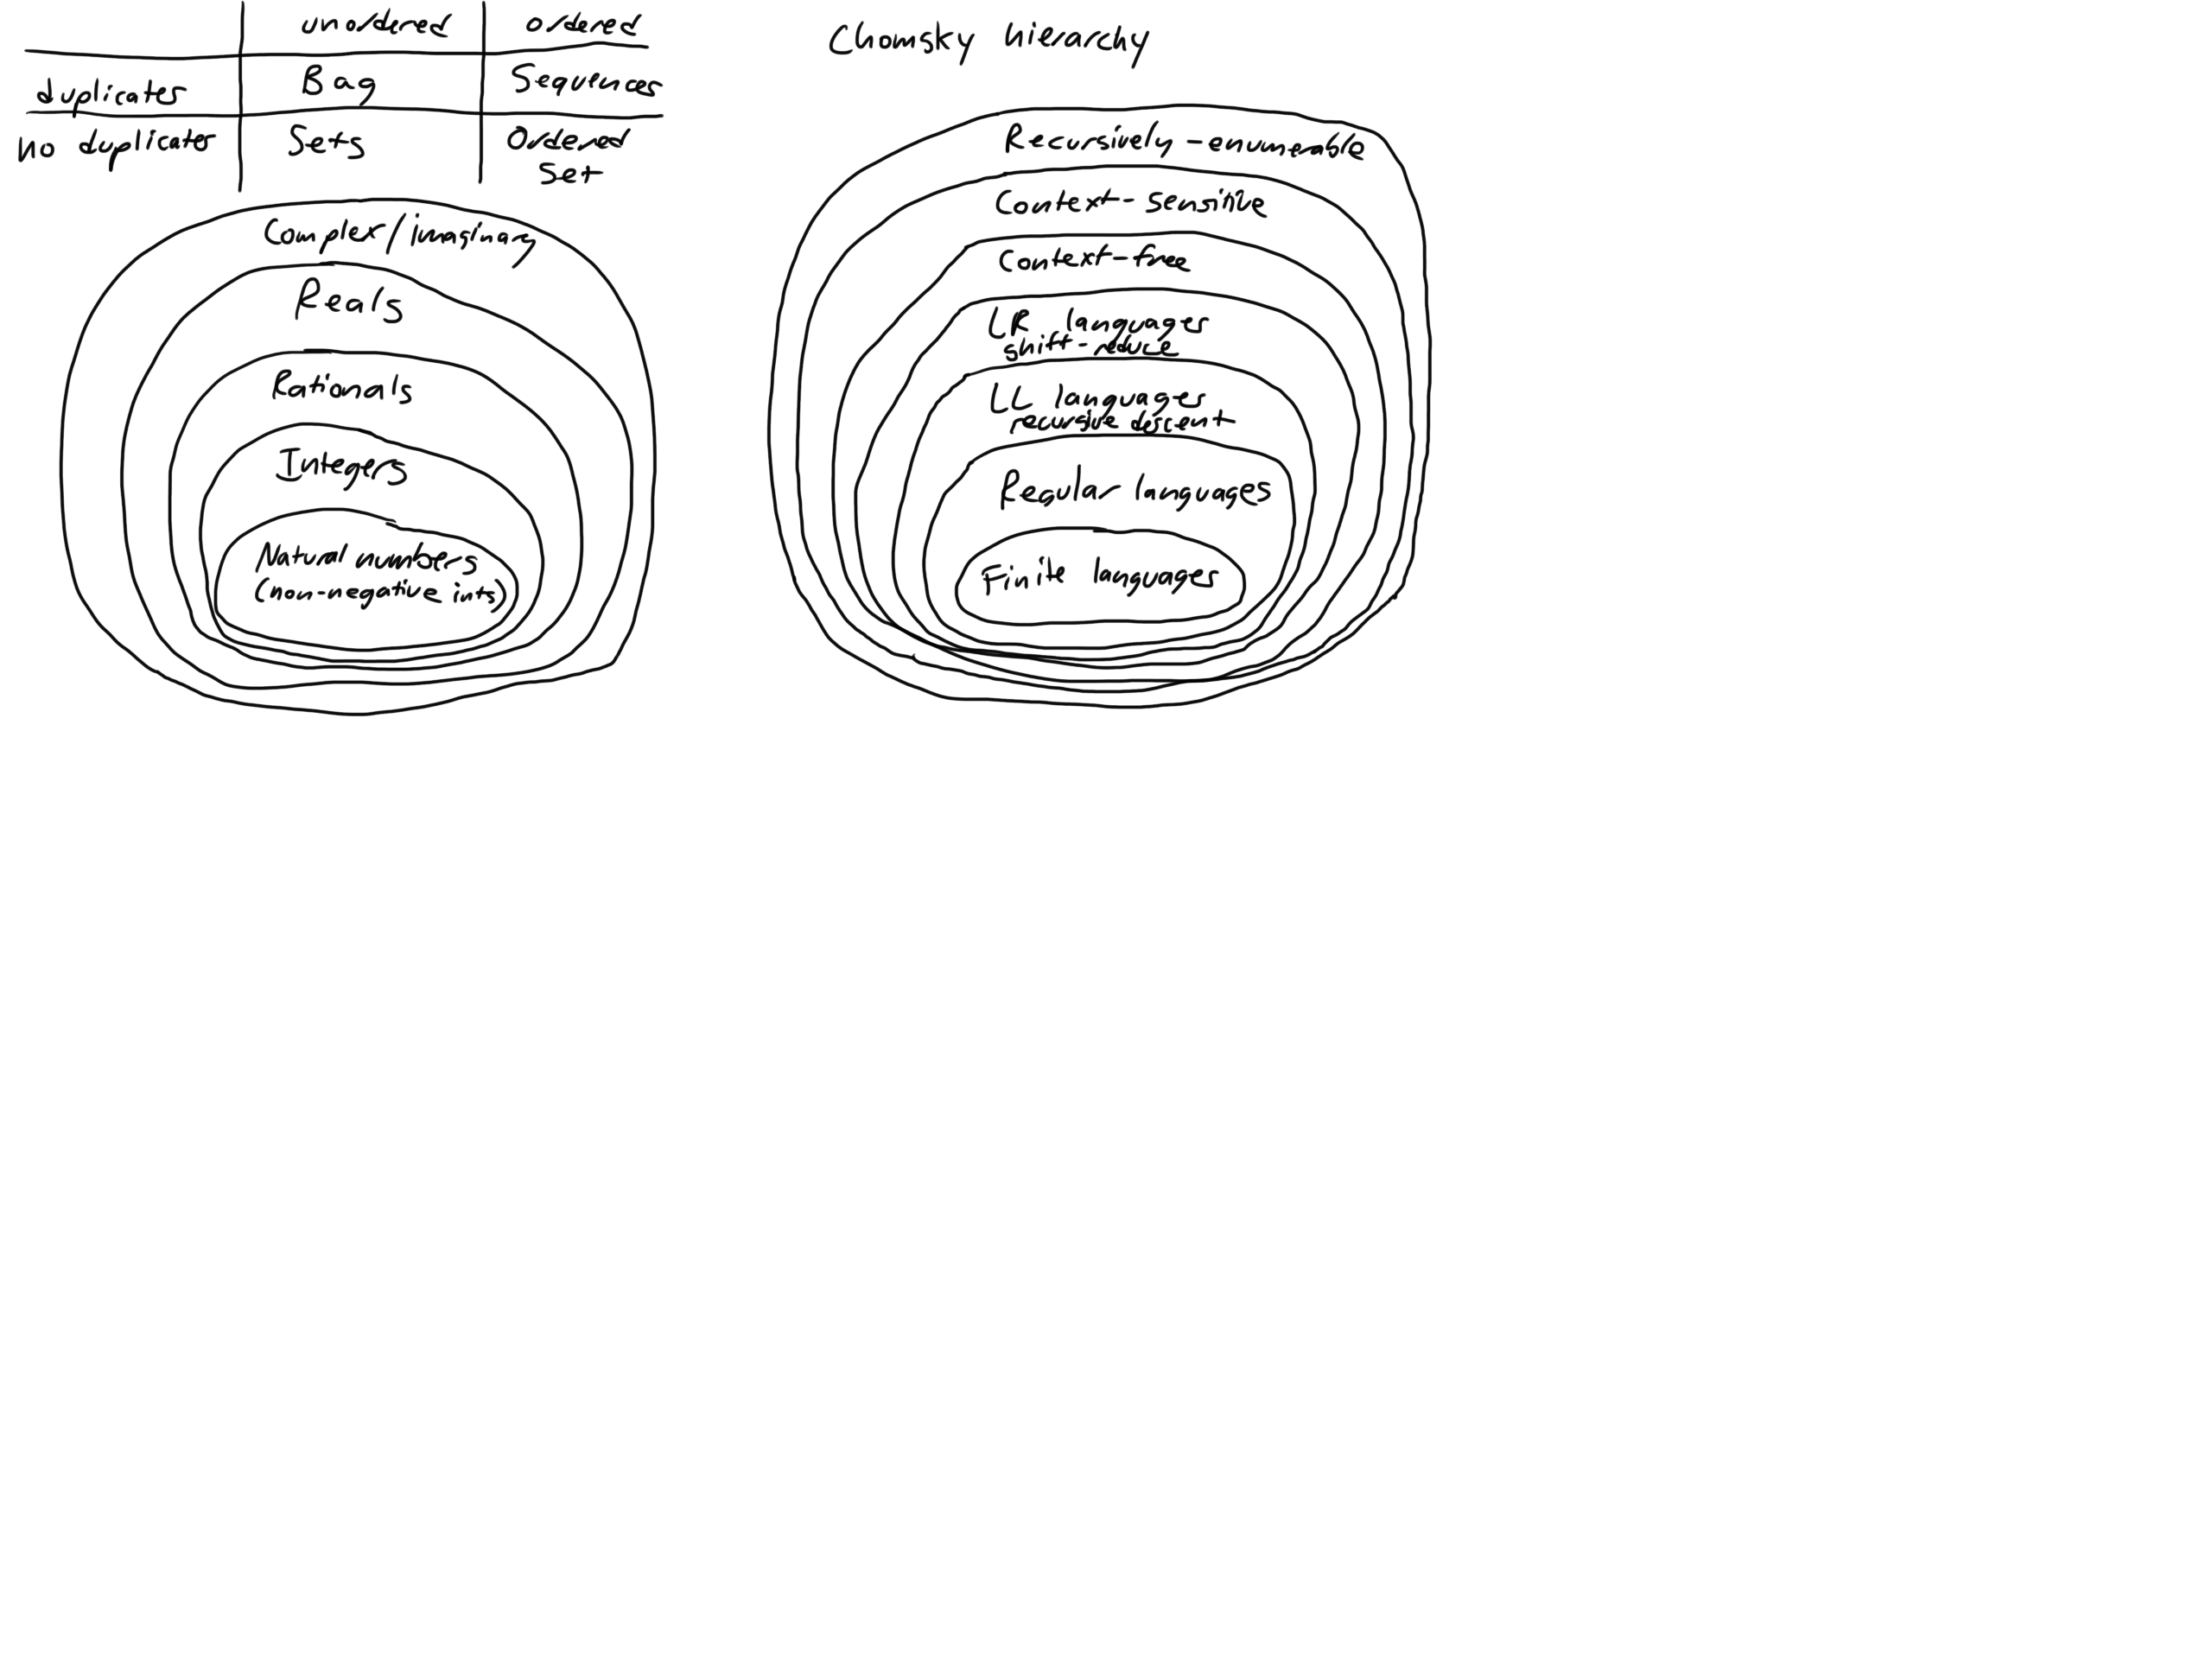 unordered ordered
duplicates Bag Sequences
no duplicates Sets Ordered
Set
Complex/imaginary
Reals
Rationals
Integers
Natural numbers
(non-negative ints)
Chomsky hierarchy
Recursively-enumerable
Context-sensitive
Context-free
LR languages
shift-reduce
LL languages
recursive descent
Regular languages
Finite languages